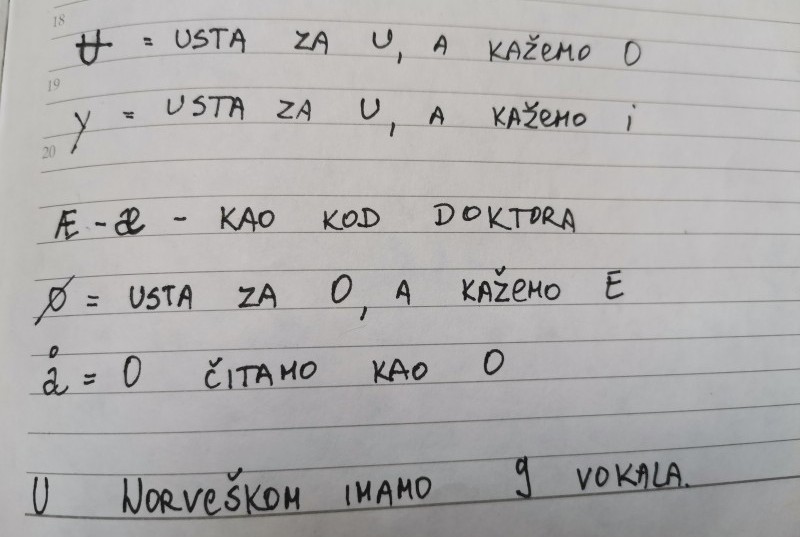 18
ʉ = USTA ZA U, A KAŽEMO O
19
y = USTA ZA U, A KAŽEMO i
20
Æ - æ - KAO KOD DOKTORA
Ø = USTA ZA O, A KAŽEMO E
å = O ČITAMO KAO O
U NORVEŠKOM IMAMO 9 VOKALA.